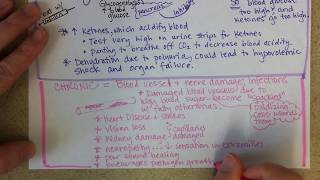 Glycogenolysis
↑ blood
glucose
pancreas
SO blood
glucose
too high and
Ketones go too high.
* ↑ Ketones, which acidify blood
• Test very high on urine strips for ketones
• Panting to breathe off CO₂ to decrease blood acidity.
* Dehydration due to polyuria, could lead to hypovolemic
shock and organ failure.
CHRONIC = Blood vessel + nerve damage, infections
* Damaged blood vessels due to
high blood sugar - become "spackled"
w/ fatty atheromas.
* Heart Disease + strokes
* Vision loss
* Kidney damage
capillaries
damaged
* neuropathy... ↓ sensation in extremities
* poor wound healing
* encourages pathogen growth